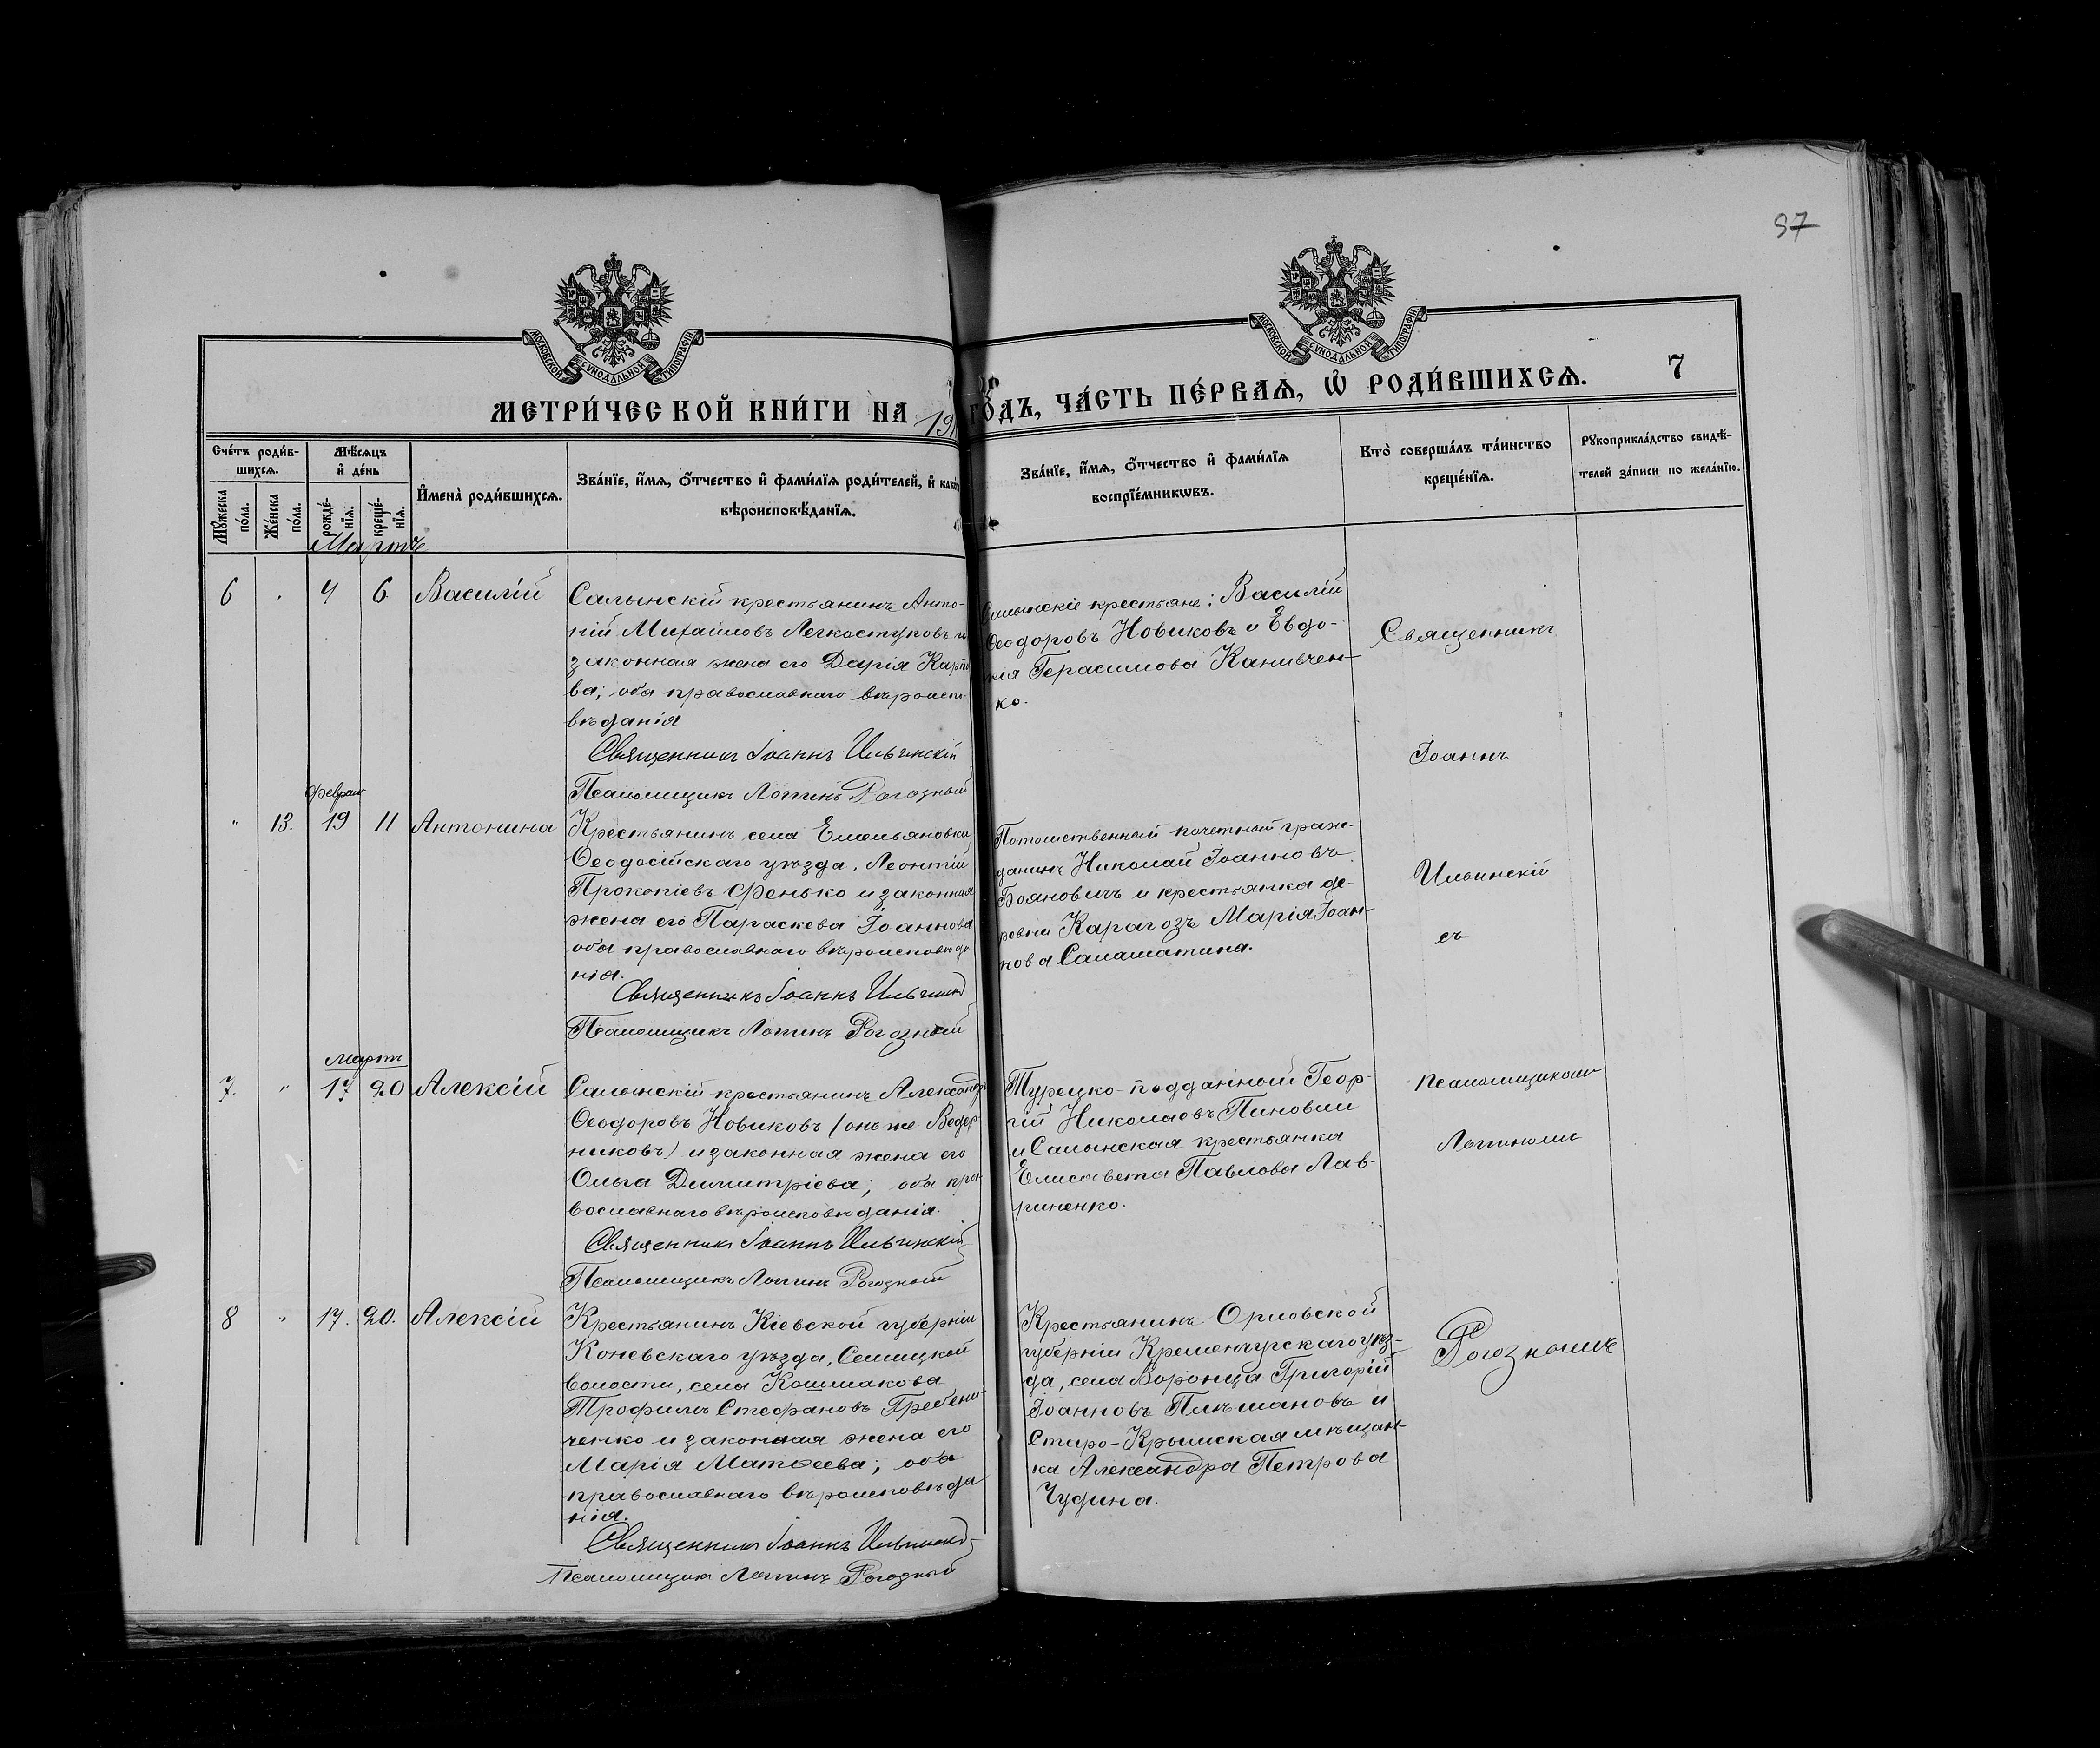 97
МОСКОВСКОЙ СѴНОДАЛЬНОЙ ТИПОГРАФІИ
МОСКОВСКОЙ СѴНОДАЛЬНОЙ ТИПОГРАФІИ
МЕТРИ́ЧЕСКОЙ КНИ́ГИ НА 191
ГО́ДЪ, ЧА́СТЬ ПЕ́РВАѦ, Ѡ҆ РОДИ́ВШИХСѦ. 7
Сче́тъ роди́в-
шихсѧ.
Мꙋ́жеска по́ла.
Же́нска по́ла.
Мѣ́сѧцъ
и҆ де́нь
рожде́-
нїѧ.
креще́-
нїѧ.
И҆мена̀ роди́вшихсѧ.
Зва́нїе, и҆́мѧ, ѻ҆́тчество и҆ фами́лїѧ роди́телей, и҆ како́гѡ
вѣроисповѣ́данїѧ.
Зва́нїе, и҆́мѧ, ѻ҆́тчество и҆ фами́лїѧ
воспрїе́мникѡвъ.
Кто̀ соверша́лъ та́инство
креще́нїѧ.
Рꙋкоприкла́дство свидѣ́-
телей за́писи по жела́нїю.
Мартъ
6 " 4 6 Василій
Салынскій крестьянинъ Анто-
ній Михаиловъ Легкоступовъ и
законная жена его Дарія Карпо
ва; оба православнаго вѣроиспо-
вѣданія
Священникъ Іоаннъ Ильинскій
Псаломщикъ Логгинъ Рогозный
Салынскіе крестьяне: Василій
Ѳеодоровъ Новиковъ и Евдо-
кія Герасимова Канивчен-
ко.
Священникъ
Іоаннъ
Феврал
" 13. 19 11 Антонина
Крестьянинъ села Емельяновки,
Ѳеодосійскаго уѣзда, Леонтій
Прокопіевъ Фенько и законная
жена его Параскева Іоаннова
оба православнаго вѣроисповѣда
нія.
Священникъ Іоаннъ Ильинскій
Псаломщикъ Логгинъ Рогозный
Потомственный почетный граж-
данинъ Николай Іоанновъ
Бояновичъ и крестьянка де-
ревни Карагозъ Марія Іоан-
нова Саламатина.
Ильинскій
съ
Мартъ
7. " 17 20 Алексій
Салынскій крестьянинъ Александръ
Ѳеодоровъ Новиковъ (онъ же Ведер
никовъ) и законная жена его
Ольга Димитріева; оба пра
вославнаго вѣроисповѣданія.
Священникъ Іоаннъ Ильинскій
Псаломщикъ Логгинъ Рогозный
Турецко-подданный Геор-
гій Николаовъ Пановъ
и Салынская крестьянка
Елисавета Павлова Лав-
риненко.
псаломщикомъ
Логгиномъ
8 " 17. 20. Алексій
Крестьянинъ Кіевской губерніи
Коневскаго уѣзда,
волости, села Кошмакова
Трофимъ Стефановъ Гребени-
ченко и законная жена его
Марія Матѳеева; оба
православнаго вѣроисповѣда
нія.
Священникъ Іоаннъ Ильинскій
Псаломщикъ Логгинъ Рогозный
Крестьянинъ Орловской
губерніи Кременчугскаго уѣз-
да, села Воронца Григорій
Іоанновъ и
Старо-Крымская мѣщан-
ка Александра Петрова
Чудина.
Рогознымъ